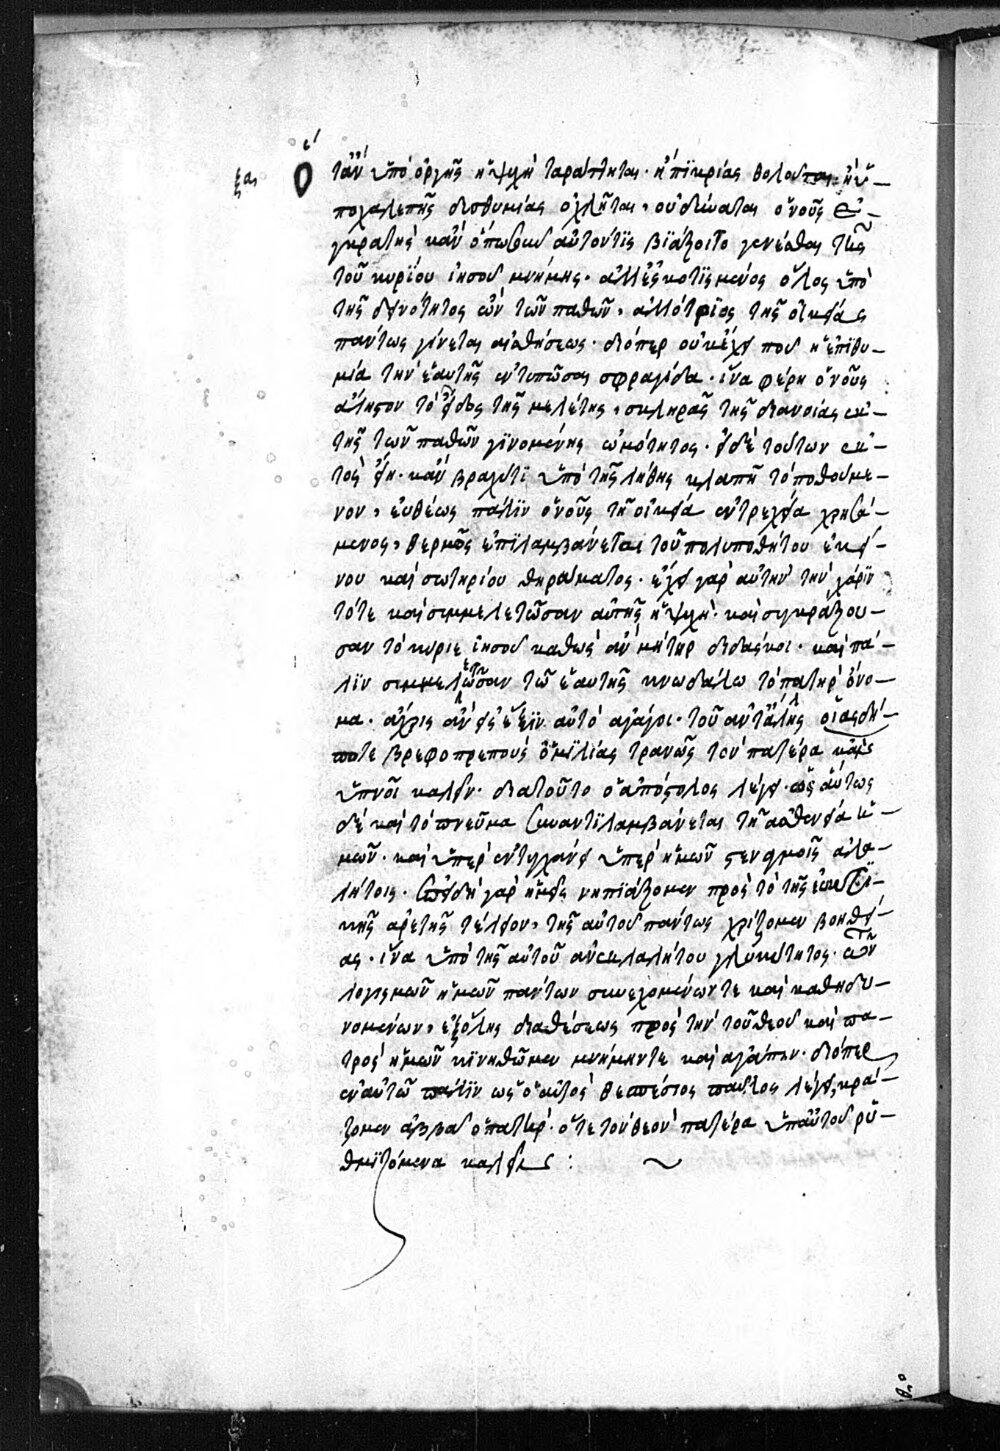 ξαʹ Ὅταν ὑπὸ ὀργῆς ἡ ψυχὴ ταράττηται· ἢ πικρίας θολοῦται· ἢ ὑ-
ποχαλεπῆς δυσθυμίας ὀχλῆται, οὐ δύναται ὁ νοῦς ἐγ-
κρατὴς κἂν ὁπωσοῦν αὐτόν τις βιάζοιτο γενέσθαι τῆς
τοῦ κυρίου ἰησοῦ μνήμης· ἀλλ' ἐσκοτισμένος ὅλος ὑπὸ
τῆς δεινότητος ὢν τῶν παθῶν, ἀλλότριος τῆς οἰκείας
πάντως γίνεται αἰσθήσεως· διόπερ οὐκ ἔχει ποῦ ἡ ἐπιθυ-
μία τὴν ἑαυτῆς ἐντυπῶσαι σφραγίδα· ἵνα φέρη ὁ νοῦς
ἄληστον τὸ εἶδος τῆς μελέτης, σκληρᾶς τῆς διανοίας ἐκ
τῆς τῶν παθῶν γινομένης ὠμότητος· εἰ δὲ τούτων ἐκ-
τὸς εἴη· κἂν βραχύ τι ὑπὸ τῆς λήθης κλαπῆ τὸ ποθούμε-
νον, εὐθέως πάλιν ὁ νοῦς τῆ οἰκεία ἐντρεχεία χρησά-
μενος, θερμῶς ἐπιλαμβάνεται τοῦ πολυποθήτου ἐκεί-
νου καὶ σωτηρίου θηράματος· ἔχει γὰρ αὐτὴν τὴν χάριν
τότε καὶ συμμελετῶσαν αὐτῆς ἡ ψυχὴ· καὶ συγκράζου-
σαν τὸ κύριε ἰησοῦ καθὼς ἂν μήτηρ διδάσκοι· καὶ πά-
λιν συμμελετῶσαν τῶ ἑαυτῆς κνωδάλω τὸ πατὴρ ὄνο-
μα· ἄχρις ἂν εἰς ἕξιν αὐτὸ ἀγάγοι· τοῦ ἀντ' ἄλλης οἵας δή-
ποτε βρεφοπρεποῦς ὁμιλίας τρανῶς τὸν πατέρα καὶ ἐν
ὕπνοι καλεῖν· διατοῦτο ὁ ἀπόστολος λέγει· ὡσαύτως
δὲ καὶ τὸ πνεῦμα συναντιλαμβάνεται τῆ ἀσθενεία ἡ-
μῶν· καὶ ὑπερεντυγχάνει ὑπὲρ ἡμῶν στεναγμοῖς ἀλα-
λήτοις· ἐπειδὴ γὰρ ἡμεῖς νηπιάζομεν πρὸς τὸ τῆς
κῆς ἀρετῆς τέλειον, τῆς αὐτοῦ πάντως χρίζομεν βοηθεί-
ας· ἵνα ὑπὸ τῆς αὐτοῦ ἀνεκλαλήτου γλυκύτητος· τῶν
λογισμῶν ἡμῶν πάντων συνεχομένων τε καὶ καθηδυ-
νομένων, ἐξ ὅλης διαθέσεως πρὸς τὴν τοῦ θεοῦ καὶ πα-
τρὸς ἡμῶν κινηθῶμεν μνήμην τε καὶ ἀγάπην· διόπερ
ἐν αὐτῶ πάλιν ὡς ὁ αὐτὸς θεσπέσιος παῦλος λέγει, κρά-
ζομεν ἀββᾶ ὁ πατήρ· ὅτε τὸν θεὸν πατέρα ὑπ' αὐτοῦ ῥυ-
θμιζόμενα καλεῖν :